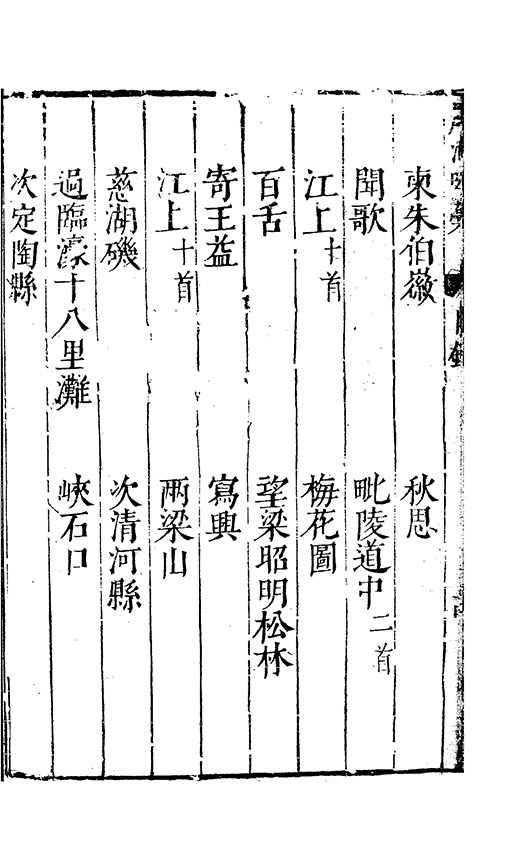 柬朱伯徽　秋思
聞歌　毗陵道中二首
江上十首　梅花圖
百舌　望梁昭明松林
寄王益　寫興
江上十首　兩梁山
慈湖磯　次清河縣
過臨濠十八里灘　峽石口
次定陶縣